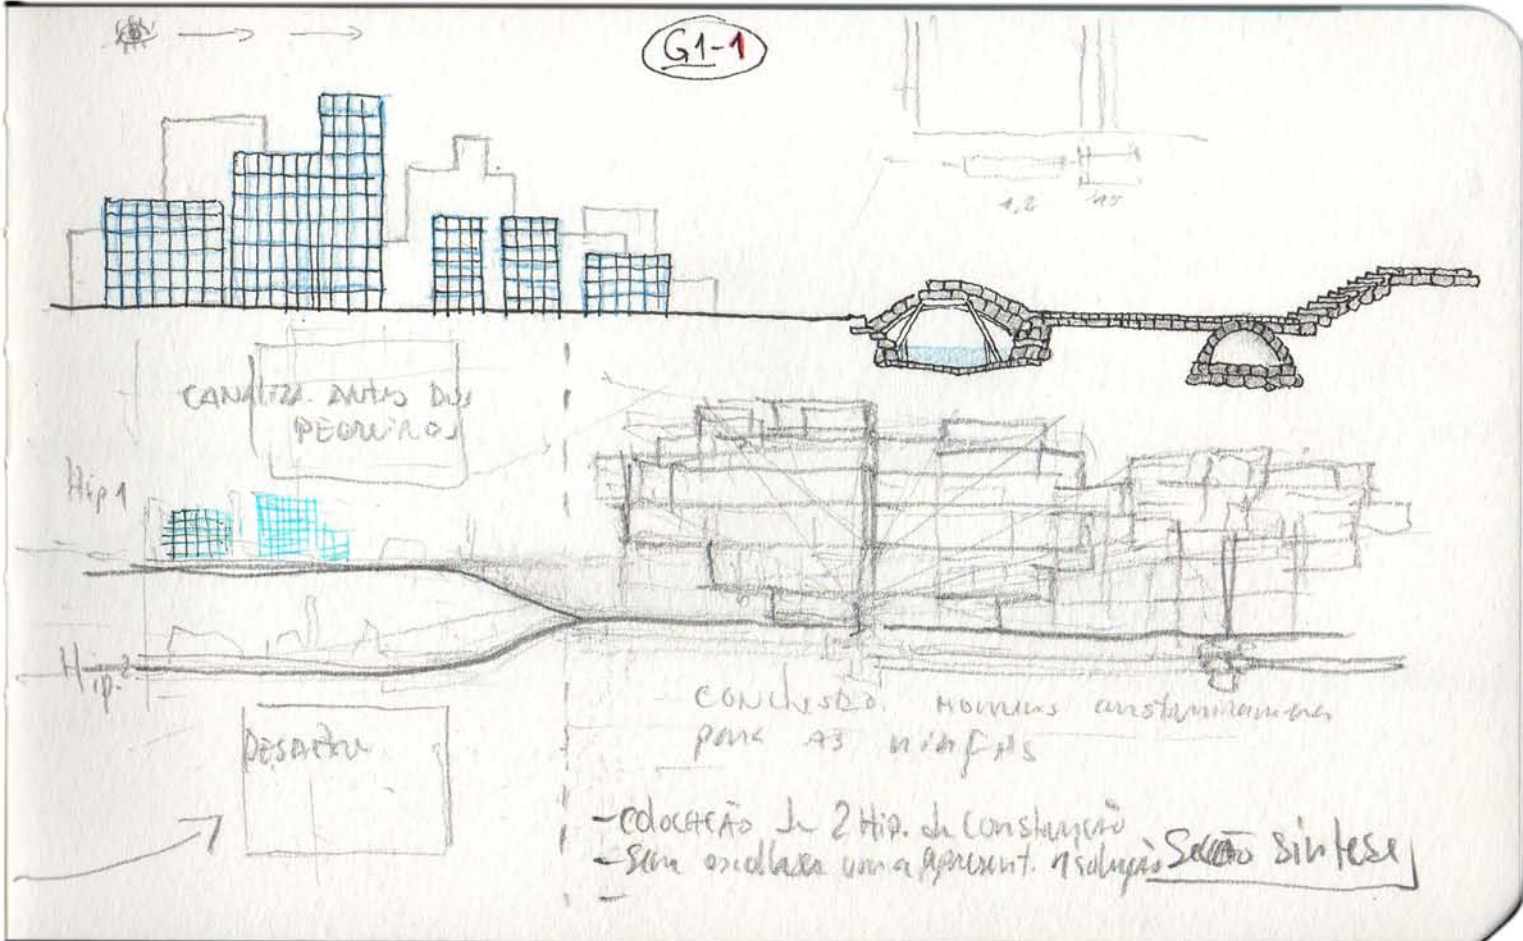 G1-1
1,2 45
CANALIZA. ANTES DOS
PEDREIROS
Hip 1
Hip. 2
DESENHO
CONCLUSÃO.
para AS
- COLOCAÇÃO de 2 Hip. de Construção
- Sem escolher uma apresent. 1 solução Secção Sintese
-